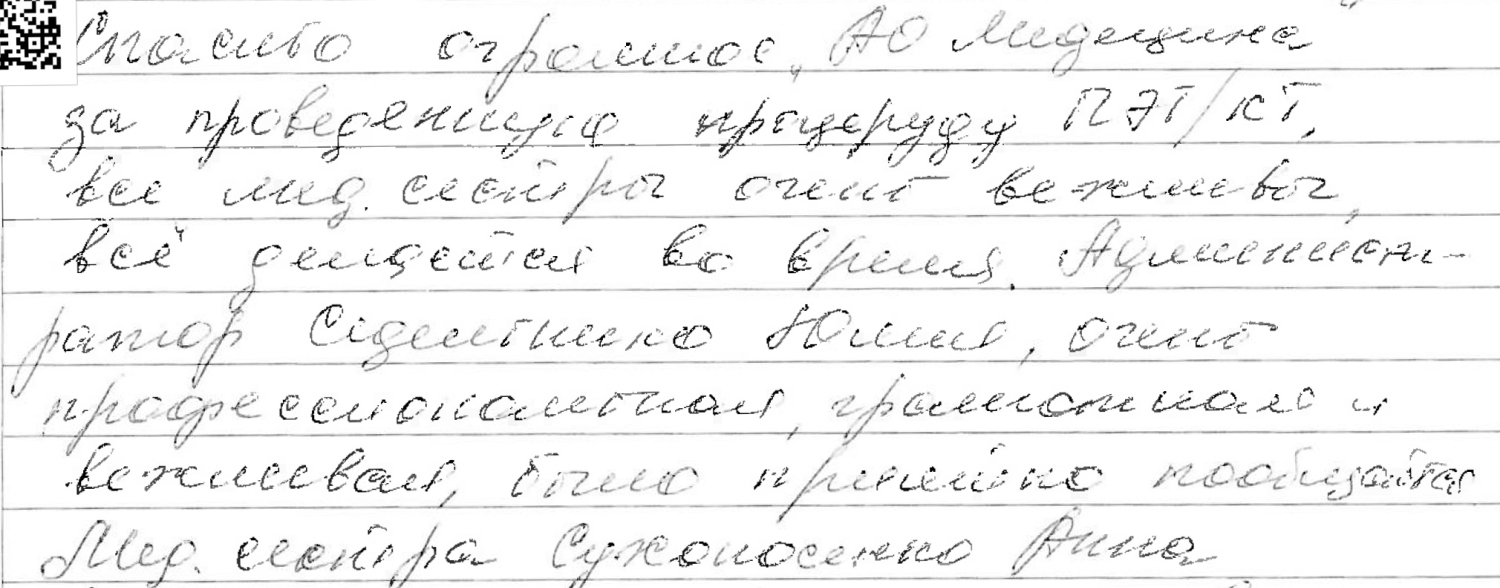 Спасибо огромное, АО Медицина
за проведенную процедуру ПЭТ/КТ,
все мед. сестры очень вежливы,
всё делается во время. Админист-
ратор Юлия, очень
профессиональная, грамотная и
вежливая, было приятно пообщаться
Мед. сестра Сухоносенко Анна